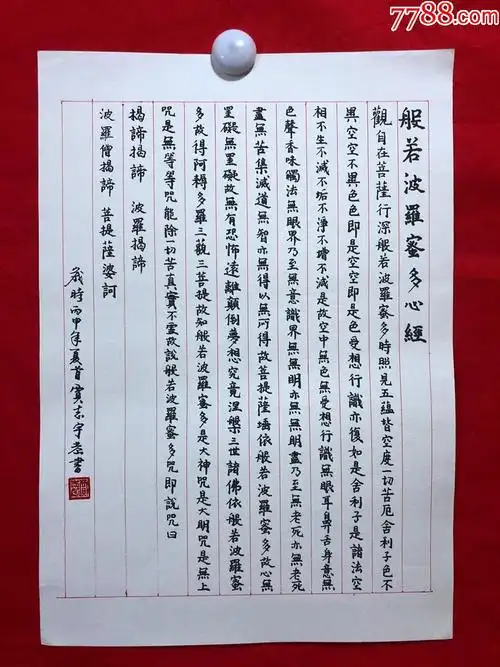 7788.com
般若波羅蜜多心經
觀自在菩薩行深般若波羅蜜多時照見五蘊皆空度一切苦厄舍利子色不
異空空不異色色即是空空即是色受想行識亦復如是舍利子是諸法空
相不生不滅不垢不淨不增不減是故空中無色無受想行識無眼耳鼻舌身意無
色聲香味觸法無眼界乃至無意識界無無明亦無無明盡乃至無老死亦無老死
盡無苦集滅道無智亦無得以無所得故菩提薩埵依般若波羅蜜多故心無
罣礙無罣礙故無有恐怖遠離顛倒夢想究竟涅槃三世諸佛依般若波羅蜜
多故得阿耨多羅三藐三菩提故知般若波羅蜜多是大神咒是大明咒是無上
咒是無等等咒能除一切苦真實不虛故說般若波羅蜜多咒即說咒曰
揭諦揭諦 波羅揭諦
波羅僧揭諦 菩提薩婆訶
歲時丙申年夏首賈志宇恭書